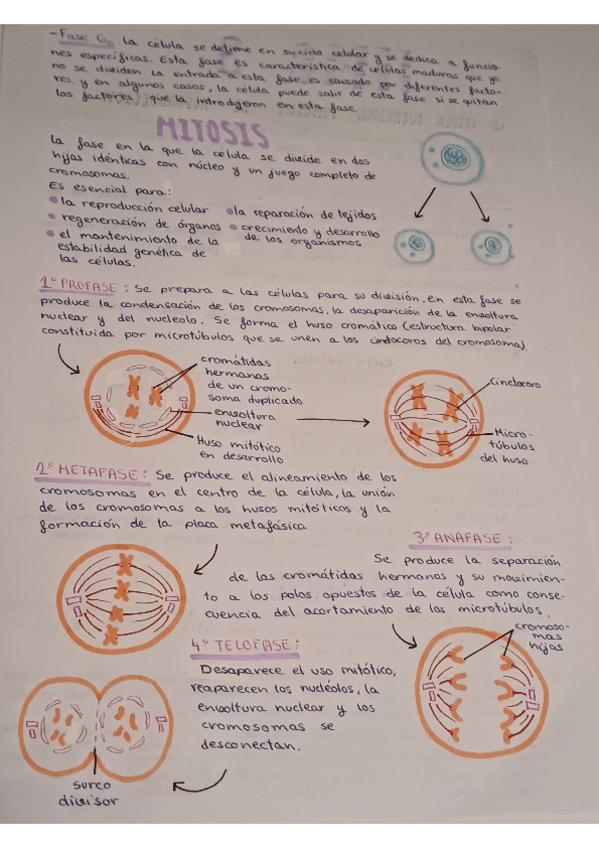 -Fase G₀ La célula se detiene en su ciclo celular y se dedica a funcio-
nes específicas. Esta fase es característica de células maduras que ya
no se dividen. La entrada a esta fase es causada por diferentes facto-
res, y en algunos casos, la célula puede salir de esta fase si se quitan
los factores que la introdujeron en esta fase.
MITOSIS
La fase en la que la célula se divide en dos
hijas idénticas con núcleo y un juego completo de
cromosomas.
Es esencial para:
la reproducción celular
regeneración de órganos
el mantenimiento de la
estabilidad genética de
las células.
la reparación de tejidos
crecimiento y desarrollo
de los organismos
1º PROFASE: Se prepara a las células para su división. En esta fase se
produce la condensación de los cromosomas, la desaparición de la envoltura
nuclear y del nucleolo. Se forma el huso cromática (estructura bipolar
constituida por microtúbulos que se unen a los cinetocoros del cromosoma).
cromátidas
hermanas
de un cromo-
soma duplicado
envoltura
nuclear
Huso mitótico
en desarrollo
Cinetocoro
Micro-
túbulos
del huso
2º METAFASE: Se produce el alineamiento de los
cromosomas en el centro de la célula, la unión
de los cromosomas a los husos mitóticos y la
formación de la placa metafásica
3º ANAFASE:
Se produce la separación
de las cromátidas hermanas y su movimien-
to a los polos opuestos de la célula como conse-
cuencia del acortamiento de los microtúbulos.
cromoso-
mas
hijas
4º TELOFASE:
Desaparece el uso mitótico,
reaparecen los nucléolos, la
envoltura nuclear y los
cromosomas se
desconectan.
surco
divisor